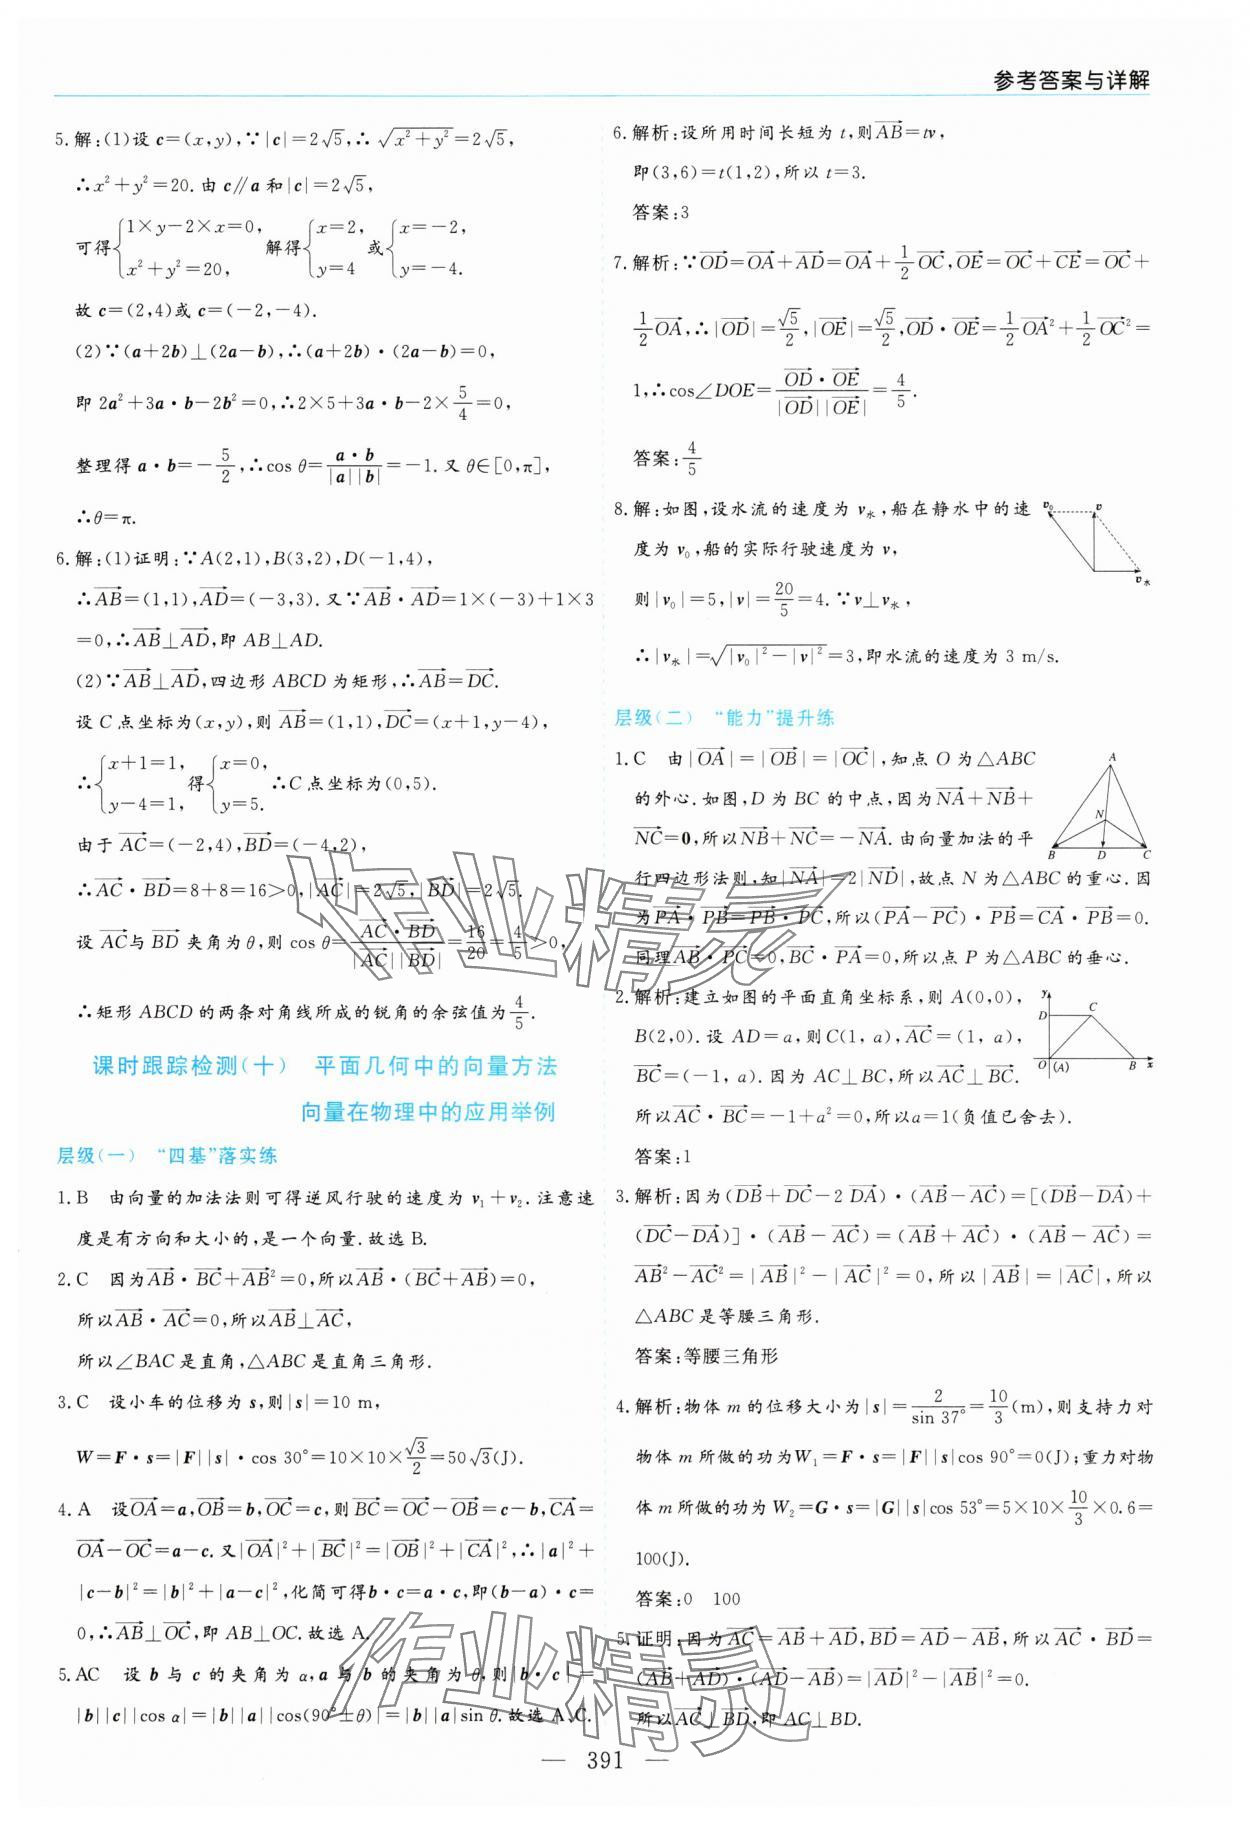 参考答案与详解
5.解:(1)设c=(x,y),∵|c|=2√5,∴√(x²+y²)=2√5,
∴x²+y²=20.由c∥a和|c|=2√5,
可得{1×y-2×x=0, x²+y²=20, 解得{x=2, y=4 或{x=-2, y=-4.
故c=(2,4)或c=(-2,-4).
(2)∵(a+2b)⊥(2a-b),∴(a+2b)·(2a-b)=0,
即2a²+3a·b-2b²=0,∴2×5+3a·b-2×5/4=0,
整理得a·b=-5/2,∴cos θ=a·b/|a||b|=-1.又θ∈[0,π],
∴θ=π.
6.解:(1)证明:∵A(2,1),B(3,2),D(-1,4),
∴AB→=(1,1),AD→=(-3,3).又∵AB→·AD→=1×(-3)+1×3
=0,∴AB→⊥AD→,即AB⊥AD.
(2)∵AB→⊥AD→,四边形ABCD为矩形,∴AB→=DC→.
设C点坐标为(x,y),则AB→=(1,1),DC→=(x+1,y-4),
∴{x+1=1, y-4=1, 得{x=0, y=5. ∴C点坐标为(0,5).
由于AC→=(-2,4),BD→=(-4,2),
∴AC→·BD→=8+8=16>0,|AC→|=2√5,|BD→|=2√5.
设AC→与BD→夹角为θ,则cos θ=AC→·BD→/|AC→||BD→|=16/20=4/5>0,
∴矩形ABCD的两条对角线所成的锐角的余弦值为4/5.
课时跟踪检测(十) 平面几何中的向量方法
向量在物理中的应用举例
层级(一) “四基”落实练
1.B 由向量的加法法则可得逆风行驶的速度为v₁+v₂.注意速
度是有方向和大小的,是一个向量.故选B.
2.C 因为AB→·BC→+AB→²=0,所以AB→·(BC→+AB→)=0,
所以AB→·AC→=0,所以AB→⊥AC→,
所以∠BAC是直角,△ABC是直角三角形.
3.C 设小车的位移为s,则|s|=10 m,
W=F·s=|F||s|·cos 30°=10×10×√3/2=50√3(J).
4.A 设OA→=a,OB→=b,OC→=c,则BC→=OC→-OB→=c-b,CA→=
OA→-OC→=a-c.又|OA→|²+|BC→|²=|OB→|²+|CA→|²,∴|a|²+
|c-b|²=|b|²+|a-c|²,化简可得b·c=a·c,即(b-a)·c=
0,∴AB→⊥OC→,即AB⊥OC.故选A.
5.AC 设b与c的夹角为α,a与b的夹角为θ,则|b·c|=
|b||c||cos α|=|b||a||cos(90°±θ)|=|b||a|sin θ.故选A、C.
6.解析:设所用时间长短为t,则AB→=tv,
即(3,6)=t(1,2),所以t=3.
答案:3
7.解析:∵OD→=OA→+AD→=OA→+1/2 OC→,OE→=OC→+CE→=OC→+
1/2 OA→,∴|OD→|=√5/2,|OE→|=√5/2,OD→·OE→=1/2 OA→²+1/2 OC→²=
1,∴cos∠DOE=OD→·OE→/|OD→||OE→|=4/5.
答案:4/5
8.解:如图,设水流的速度为v水,船在静水中的速
度为v₀,船的实际行驶速度为v,
则|v₀|=5,|v|=20/5=4.∵v⊥v水,
∴|v水|=√(|v₀|²-|v|²)=3,即水流的速度为3 m/s.
v₀ v v水
层级(二) “能力”提升练
1.C 由|OA→|=|OB→|=|OC→|,知点O为△ABC
的外心.如图,D为BC的中点,因为NA→+NB→+
NC→=0,所以NB→+NC→=-NA→.由向量加法的平
行四边形法则,知|NA→|=2|ND→|,故点N为△ABC的重心.因
为PA→·PB→=PB→·PC→,所以(PA→-PC→)·PB→=CA→·PB→=0.
同理AB→·PC→=0,BC→·PA→=0,所以点P为△ABC的垂心.
A N B D C
2.解析:建立如图的平面直角坐标系,则A(0,0),
B(2,0).设AD=a,则C(1,a),AC→=(1,a),
BC→=(-1,a).因为AC⊥BC,所以AC→⊥BC→.
所以AC→·BC→=-1+a²=0,所以a=1(负值已舍去).
答案:1
y D C O (A) B x
3.解析:因为(DB→+DC→-2 DA→)·(AB→-AC→)=[(DB→-DA→)+
(DC→-DA→)]·(AB→-AC→)=(AB→+AC→)·(AB→-AC→)=
AB→²-AC→²=|AB→|²-|AC→|²=0,所以|AB→|=|AC→|,所以
△ABC是等腰三角形.
答案:等腰三角形
4.解析:物体m的位移大小为|s|=2/sin 37°=10/3(m),则支持力对
物体m所做的功为W₁=F·s=|F||s|cos 90°=0(J);重力对物
体m所做的功为W₂=G·s=|G||s|cos 53°=5×10×10/3×0.6=
100(J).
答案:0 100
5.证明:因为AC→=AB→+AD→,BD→=AD→-AB→,所以AC→·BD→=
(AB→+AD→)·(AD→-AB→)=|AD→|²-|AB→|²=0.
所以AC→⊥BD→,即AC⊥BD.
作业精灵
作业精灵
— 391 —